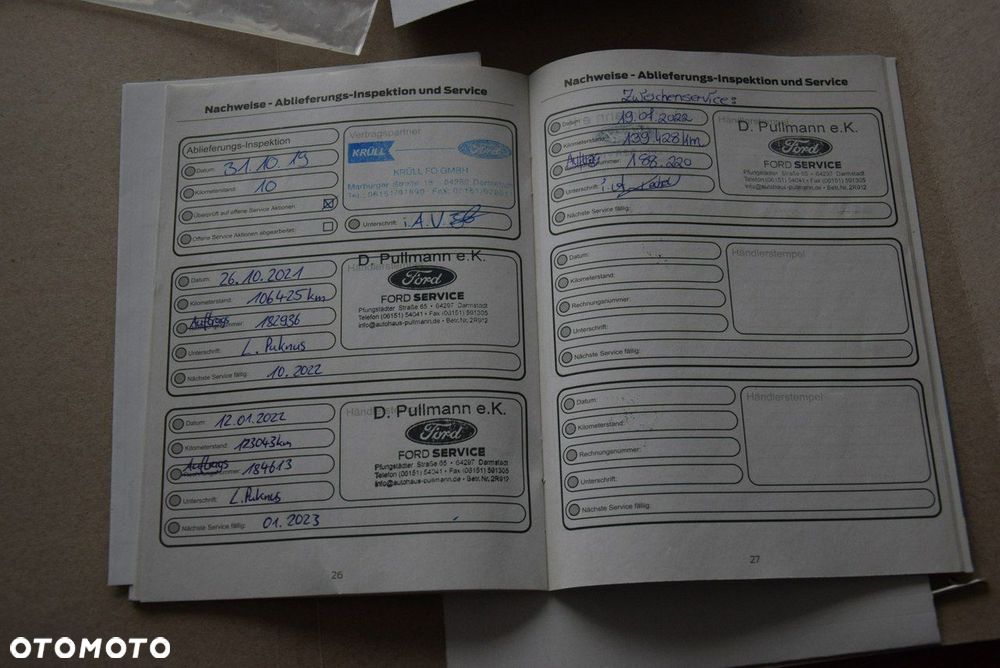 Nachweise - Ablieferungs-Inspektion und Service
Ablieferungs-Inspektion
Datum: 31.10.19
Kilometerstand: 10
Überprüft auf offene Service Aktionen:
Offene Service Aktionen abgearbeitet:
Vertragspartner
KRÜLL
Ford
KRÜLL FO GMBH
Unterschrift: i.A.
Datum: 26.10.2021
Kilometerstand: 106425 km
Auftrags nummer: 182936
Unterschrift: L. Puknus
Nächste Service fällig: 10.2022
Händlerstempel
D. Pullmann e.K.
Ford
FORD SERVICE
Pfungstädter Straße 65 • 64297 Darmstadt
Telefon (06151) 54041 • Fax (06151) 591305
info@autohaus-pullmann.de • Betr.Nr. 2R912
Datum: 12.01.2022
Kilometerstand: 123043km
Auftrags nummer: 184613
Unterschrift: L. Puknus
Nächste Service fällig: 01.2023
Händlerstempel
D. Pullmann e.K.
Ford
FORD SERVICE
Pfungstädter Straße 65 • 64297 Darmstadt
Telefon (06151) 54041 • Fax (06151) 591305
info@autohaus-pullmann.de • Betr.Nr. 2R912
26
Nachweise - Ablieferungs-Inspektion und Service
Zwischenservice:
Datum: 19.07.2022
Kilometerstand: 139428km
Auftrags nummer: 188220
Unterschrift:
Nächste Service fällig:
Händlerstempel
D. Pullmann e.K.
Ford
FORD SERVICE
Pfungstädter Straße 65 • 64297 Darmstadt
Telefon (06151) 54041 • Fax (06151) 591305
info@autohaus-pullmann.de • Betr.Nr. 2R912
Datum:
Kilometerstand:
Rechnungsnummer:
Unterschrift:
Nächste Service fällig:
Händlerstempel
Datum:
Kilometerstand:
Rechnungsnummer:
Unterschrift:
Nächste Service fällig:
Händlerstempel
27
OTOMOTO